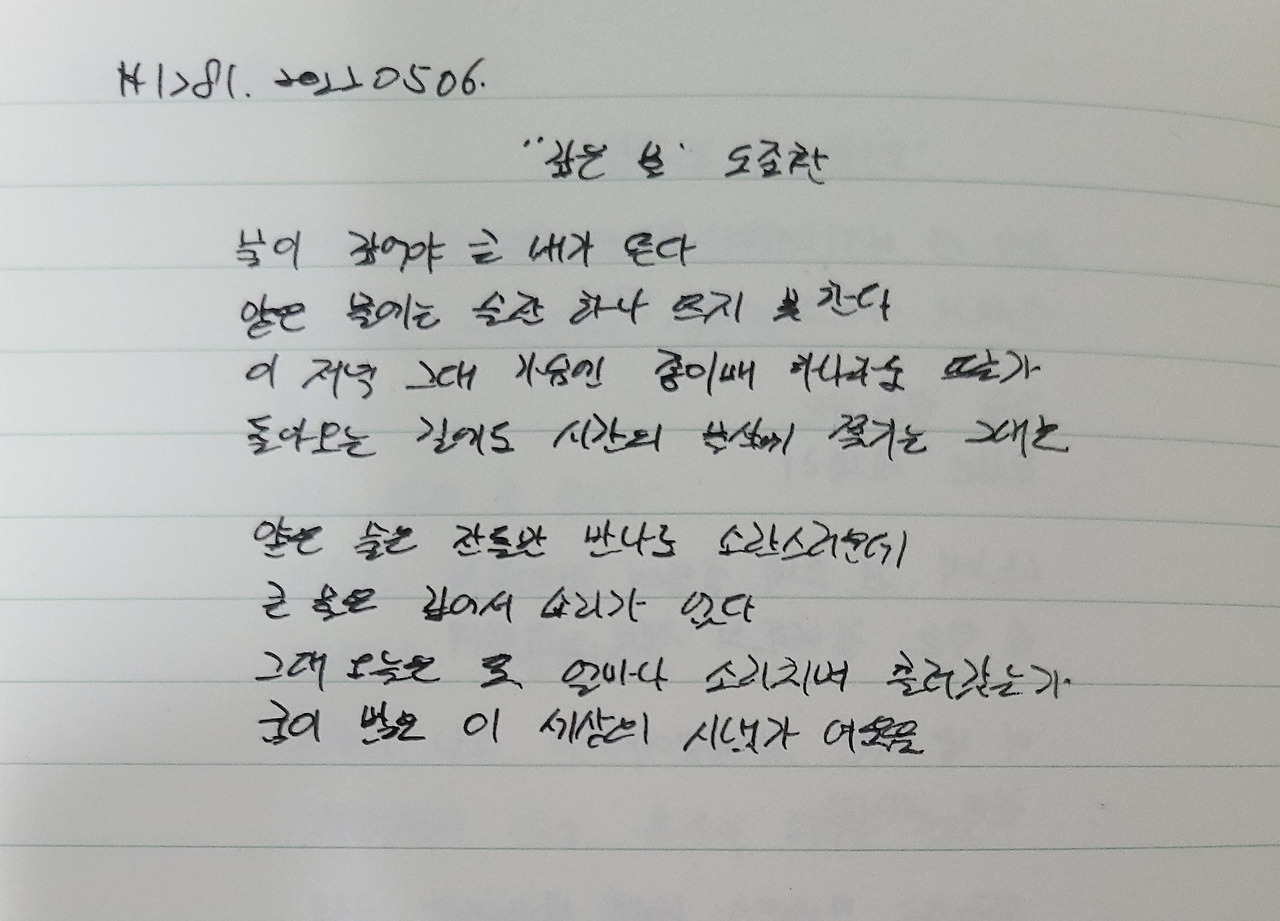 #1281. 20220506.
"깊은 물" 도종환
물이 깊어야 큰 배가 뜬다
얕은 물에는 술잔 하나 뜨지 못한다
이 저녁 그대 가슴엔 종이배 하나라도 뜨는가
돌아오는 길에도 시간의 물살에 쫓기는 그대는
얕은 물은 잔돌만 만나도 소란스러운데
큰 물은 깊어서 소리가 없다
그대 오늘은 또 얼마나 소리치며 흘러갔는가
굽이 많은 이 세상의 시냇가 여울을